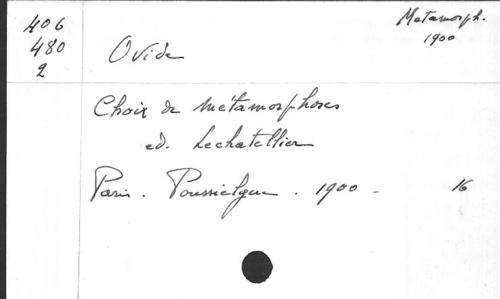 406
480
2
Metamorph.
1900
Ovide
Choix de métamorphoses
ed. Lechatellier
Paris. Poussielgue. 1900 - 16